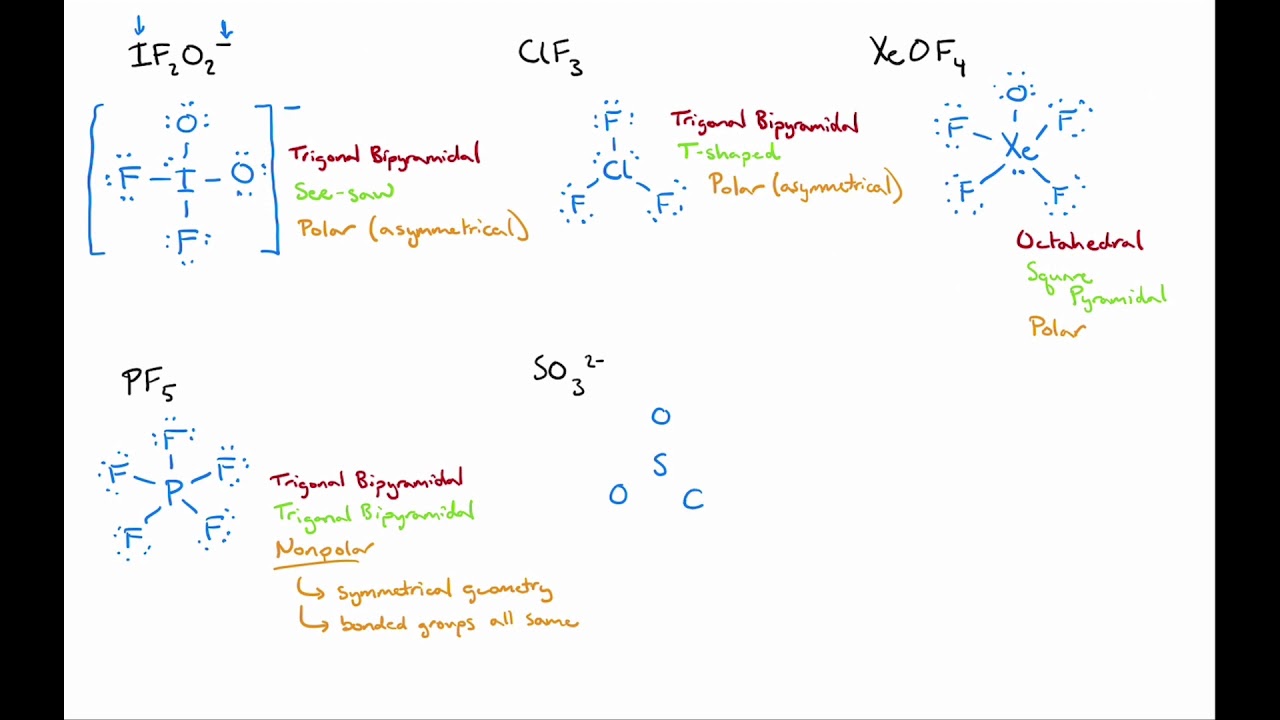 IF₂O₂⁻
ClF₃
XeOF₄
O
F I O
F
−
Trigonal Bipyramidal
See-saw
Polar (asymmetrical)
F
Cl
F F
Trigonal Bipyramidal
T-shaped
Polar (asymmetrical)
O
F F
Xe
F F
Octahedral
Square
Pyramidal
Polar
PF₅
F
F F
P
F F
Trigonal Bipyramidal
Trigonal Bipyramidal
Nonpolar
symmetrical geometry
bonded groups all same
SO₃²⁻
O
S
O C